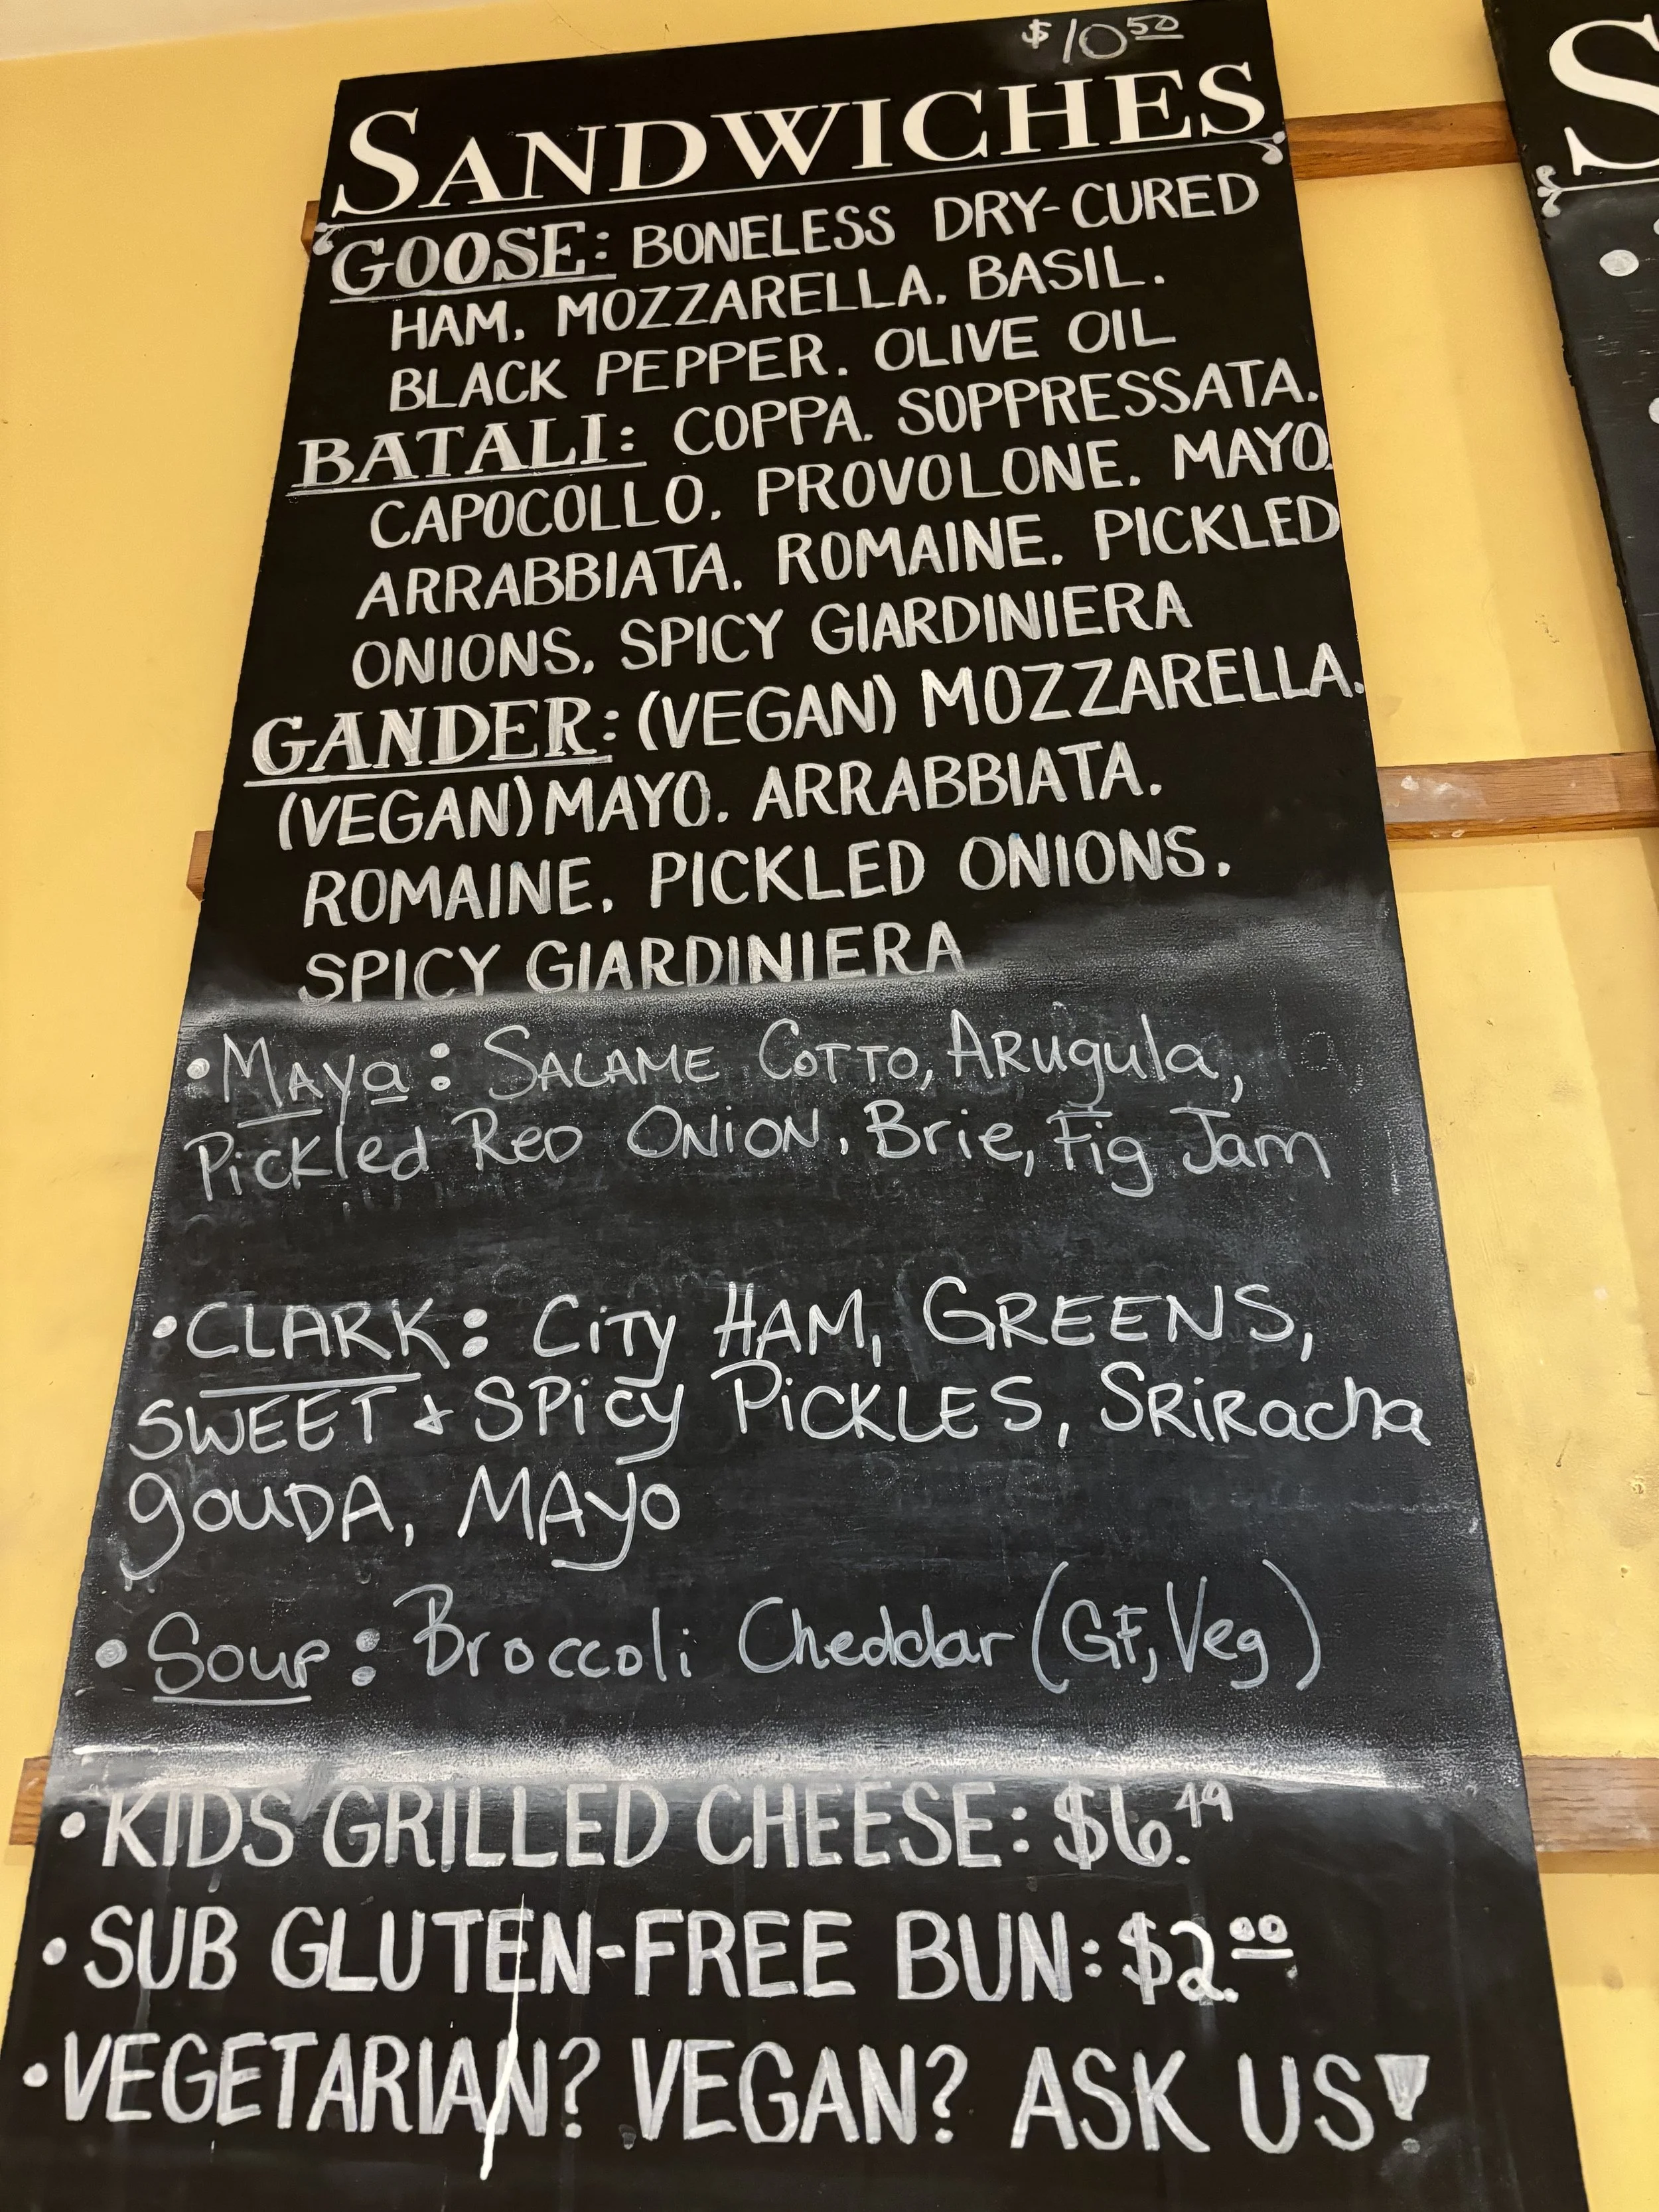 $10.50
SANDWICHES
GOOSE: BONELESS DRY-CURED
HAM, MOZZARELLA, BASIL,
BLACK PEPPER, OLIVE OIL
BATALI: COPPA, SOPPRESSATA,
CAPOCOLLO, PROVOLONE, MAYO,
ARRABBIATA, ROMAINE, PICKLED
ONIONS, SPICY GIARDINIERA
GANDER: (VEGAN) MOZZARELLA,
(VEGAN) MAYO, ARRABBIATA,
ROMAINE, PICKLED ONIONS,
SPICY GIARDINIERA
• Maya: SALAME COTTO, Arugula,
Pickled Red ONION, Brie, Fig Jam
• CLARK: City HAM, GREENS,
SWEET + SPicy PicKLES, SRiRacha
gouDA, MAyo
• Soup: Broccoli Cheddar (GF, Veg)
• KIDS GRILLED CHEESE: $6.49
• SUB GLUTEN-FREE BUN: $2.00
• VEGETARIAN? VEGAN? ASK US!
S